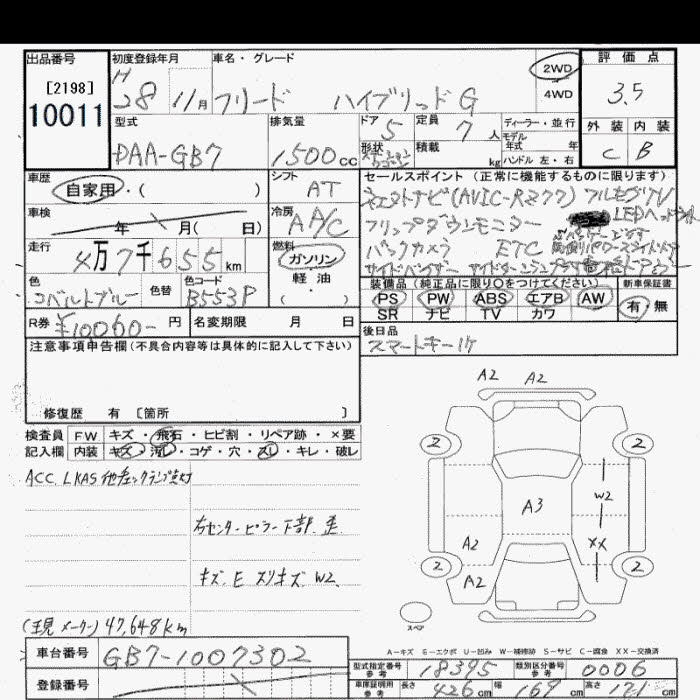 出品番号 初度登録年月 車名・グレード 評価点
[2198] H 28 11月 フリード ハイブリッド G 2WD 4WD 3.5
10011
型式 排気量 ドア 定員 ディーラー・並行 外装 内装
DAA-GB7 1500cc 5 7人 モデル年式 年 C B
形状 積載 kg ハンドル 左・右
車歴 シフト セールスポイント (正常に機能するものに限ります)
自家用・( ) AT コネクトナビ(AVIC-RZ77) フルセグTV
車検 冷房 フリップダウンモニター LEDヘッドライト
年 月( 日) AA/C
走行 燃料 バックカメラ ETC 両側パワースライドドア
4万7千655km ガソリン
色 色替 色コード 軽油 サイドバイザー
コバルトブルー B553P ( ・ ) 装備品(純正品に限り○をつけてください) 新車保証書
PS PW ABS エアB AW 有・無
SR ナビ TV カワ
R券 ¥10060- 円 名変期限 月 日 後日品
スマートキー1ケ
注意事項申告欄(不具合内容等は具体的に記入して下さい)
修復歴 有 [箇所 ]
検査員 FW キズ・飛石・ヒビ割・リペア跡・×要
記入欄 内装 キズ・汚れ・コゲ・穴・スレ・キレ・破レ
ACC LKAS 他チェックランプ点灯
右センターピラー下部 歪
キズ、E スリキズ W2、
(現メーター) 47,648km
A2 A2
2 2
W2
A3
A2 XX
2 2
A2
スペア
A-キズ E-エクボ U-凹み W-補修跡 S-サビ C-腐食 XX-交換済
車台番号 GB7-1007302
型式指定番号 参考 18395 類別区分番号 参考 0006
登録番号
車庫証明用 参考 長さ 426cm 幅 169cm 高さ 171cm